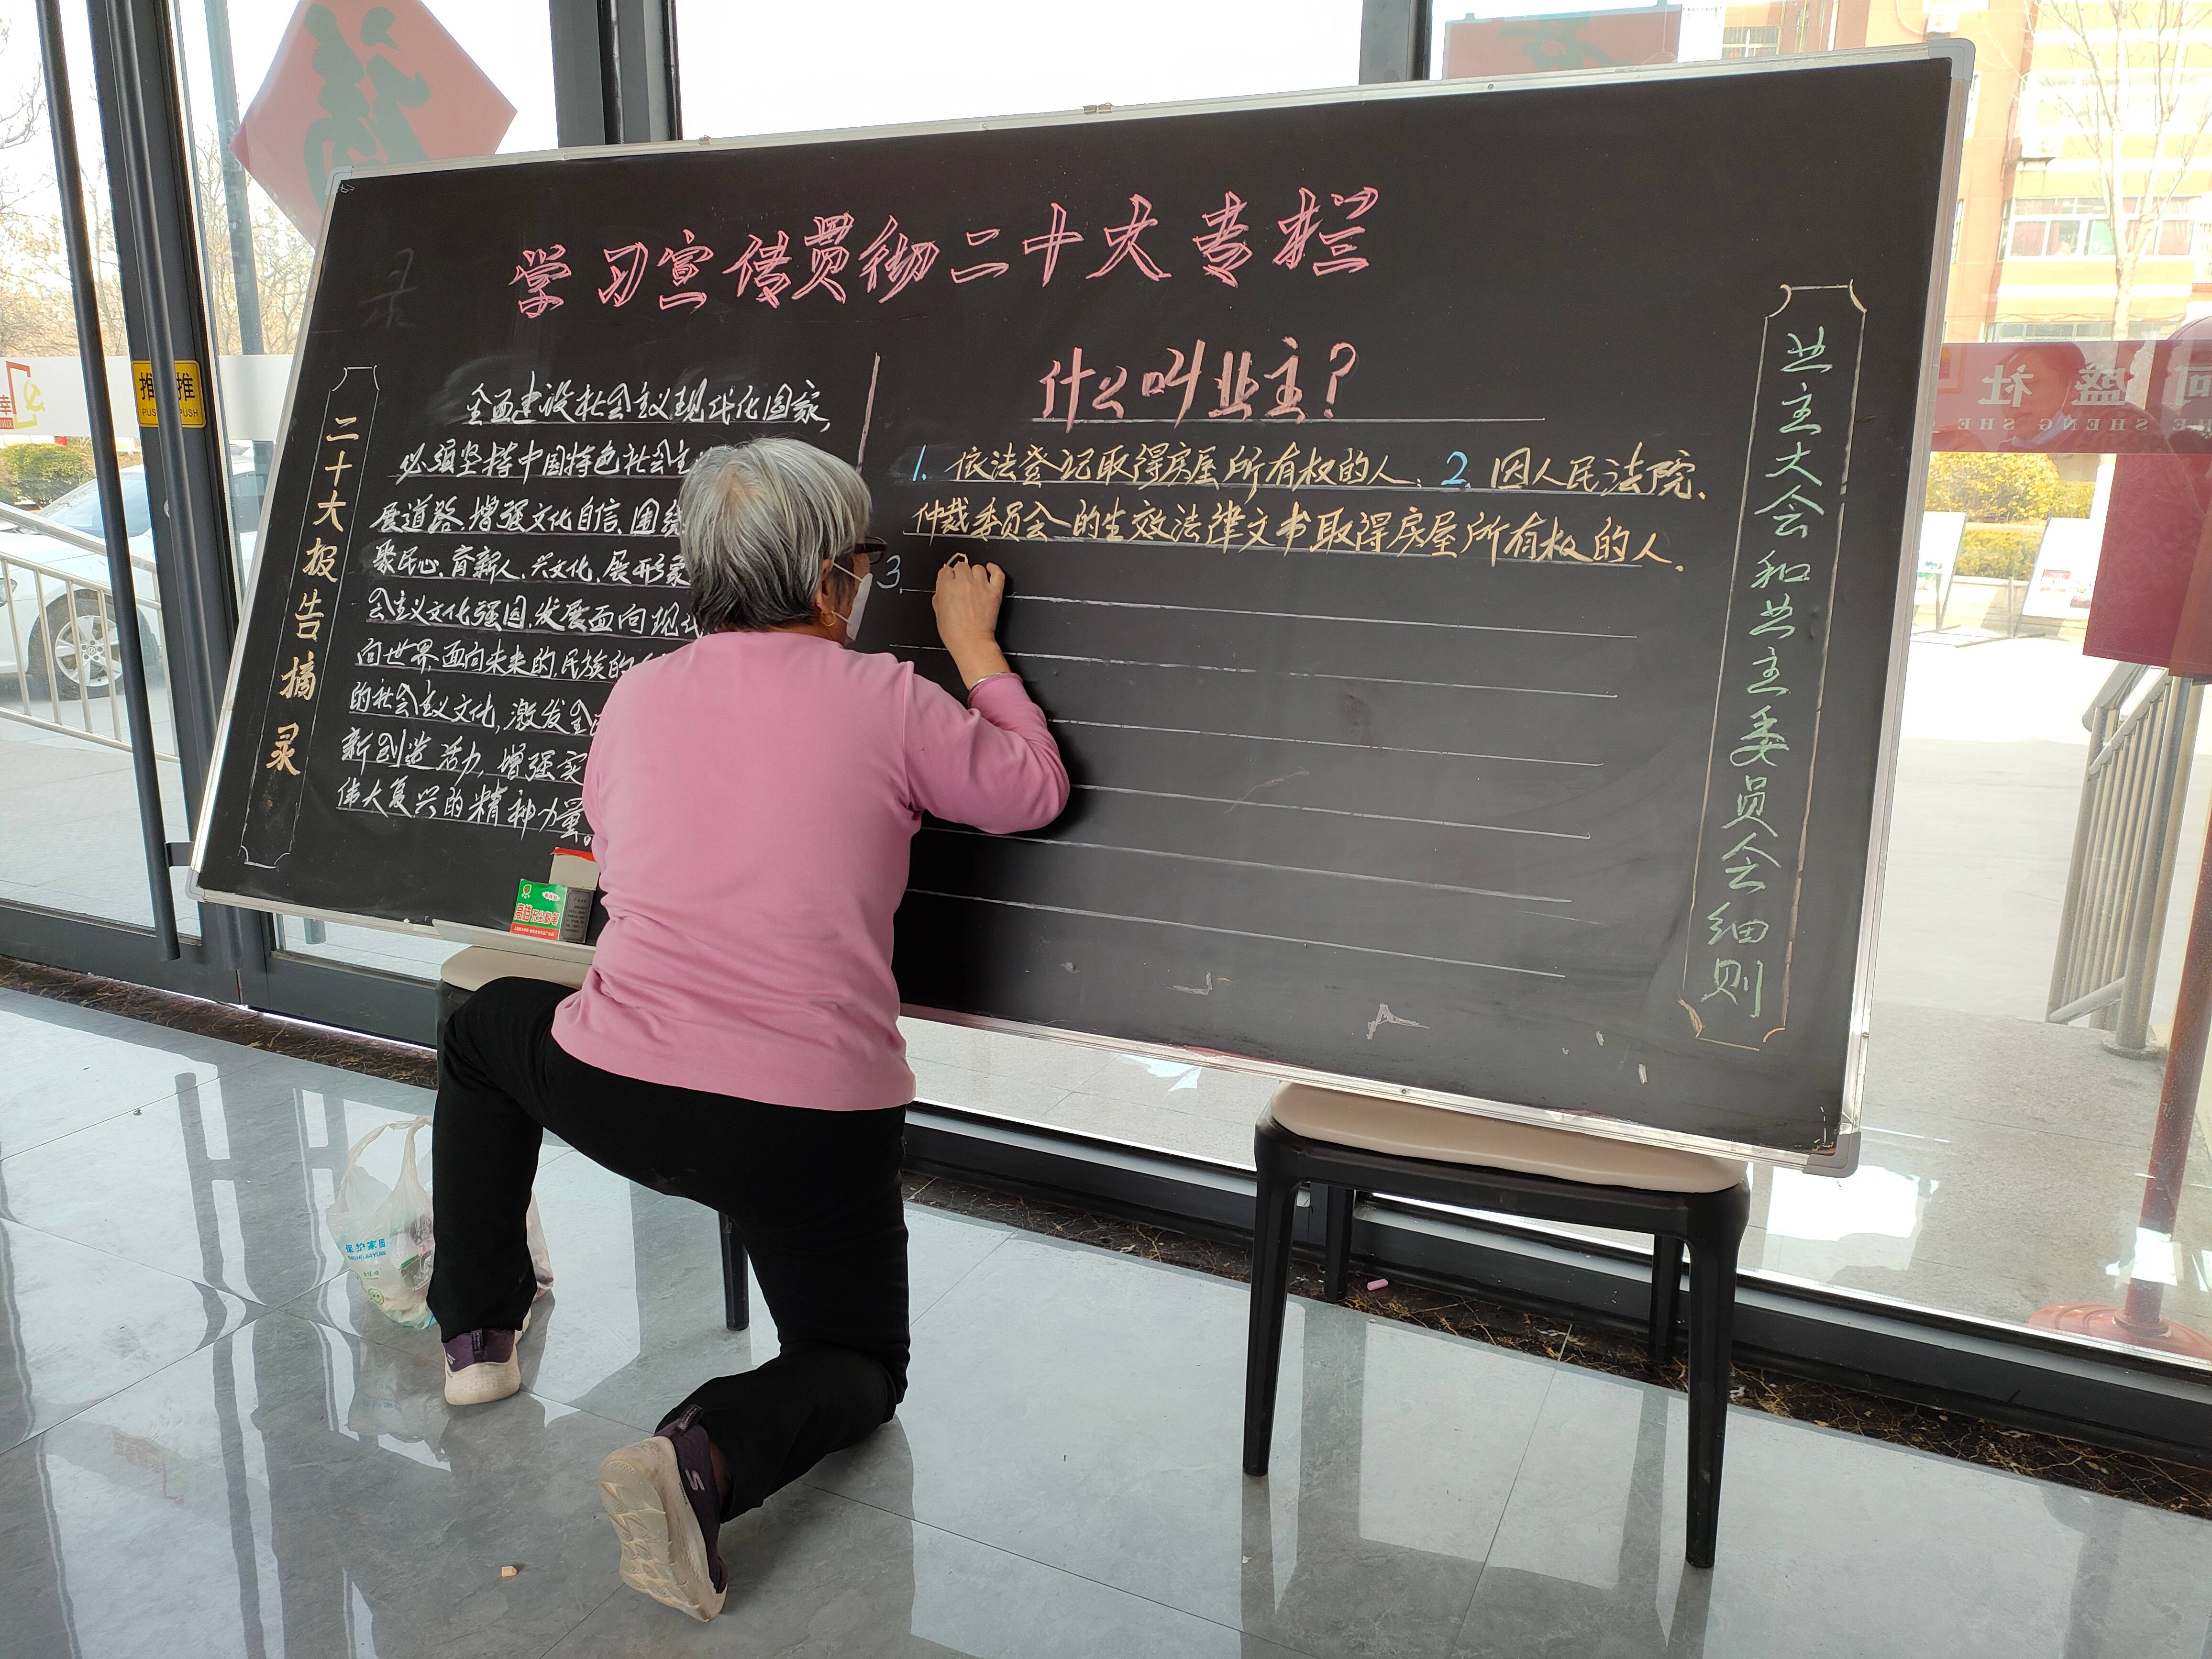 福
学习宣传贯彻二十大专栏
录
二十大报告摘录
全面建设社会主义现代化国家,
必须坚持中国特色社会主
展道路.增强文化自信、围绕
聚民心、育新人、兴文化、展形象
会主义文化强国,发展面向现代
向世界面向未来的,民族的
的社会主义文化,激发全
新创造活力,增强实
伟大复兴的精神力量。
什么叫业主?
1. 依法登记取得房屋所有权的人; 2. 因人民法院、
仲裁委员会的生效法律文书取得房屋所有权的人.
3.
业主大会和业主委员会细则
推 推
PUSH PUSH
盛社
SHENG SHE